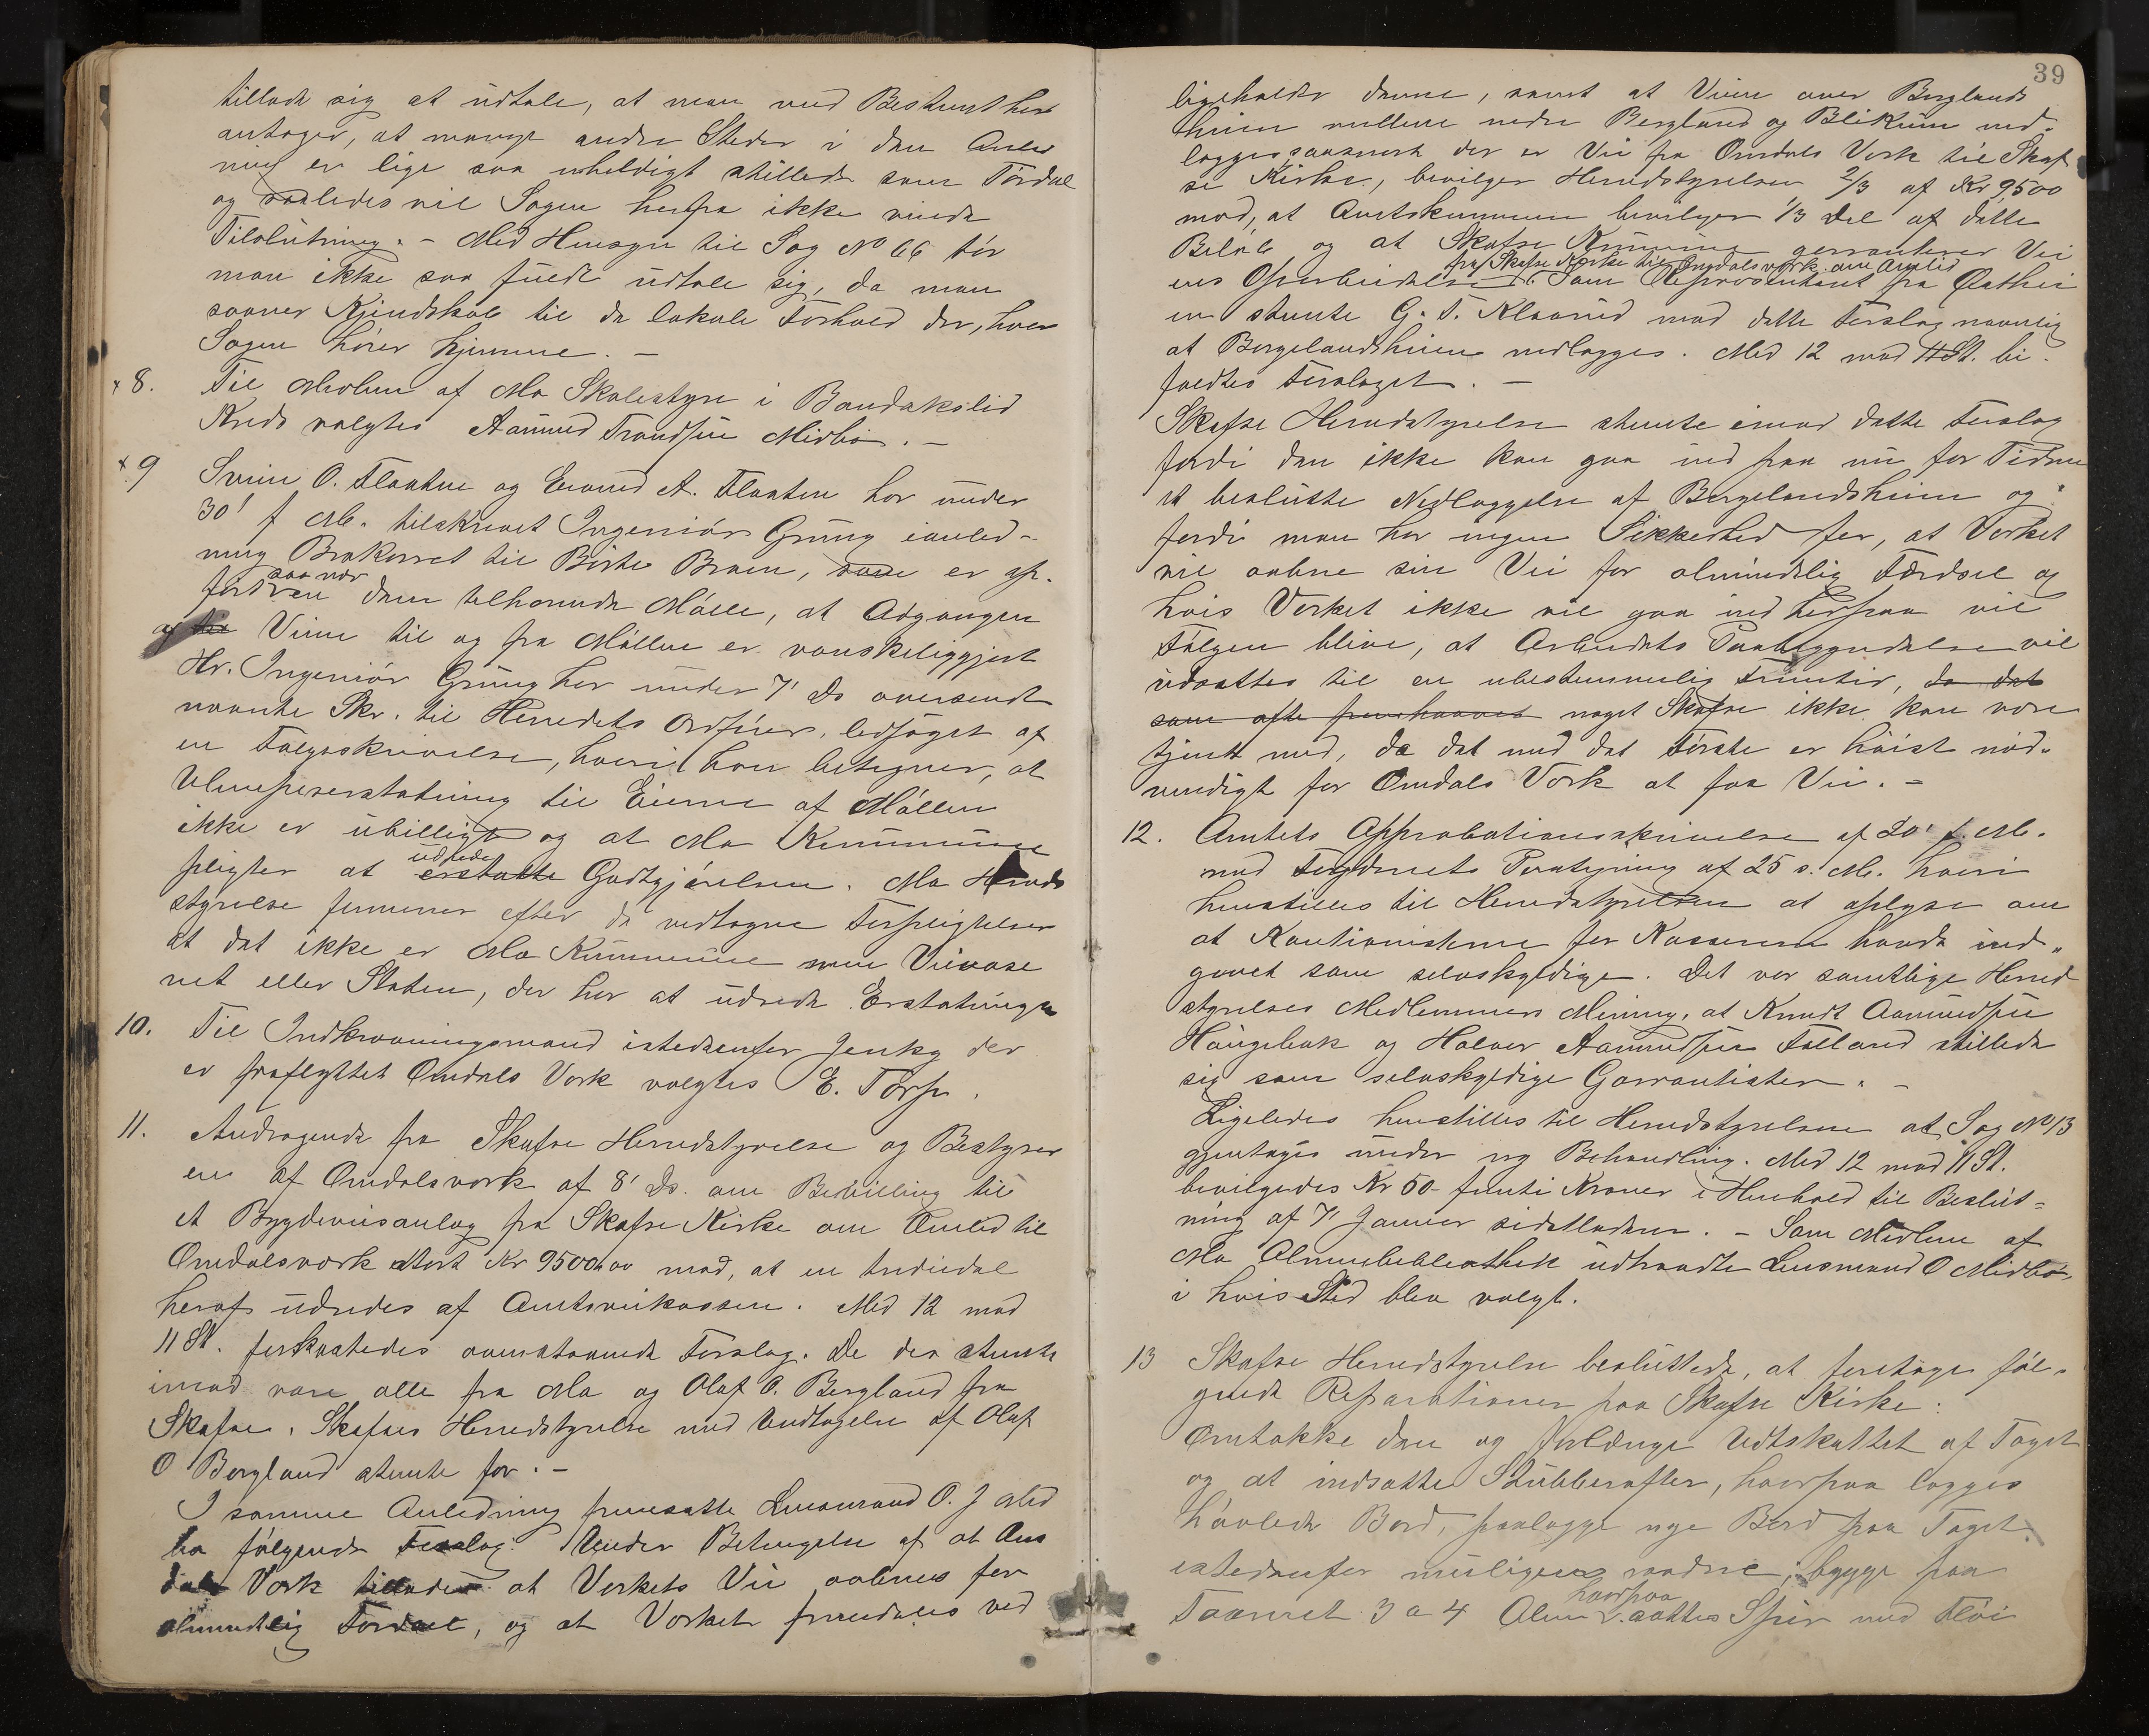 tillade sig at udtale, at man med Bestemthed
antager, at mange andre Steder i den Anled
ning er lige saa uheldigt stillede som Tørdal
og saaledes vil Sagen herfra ikke vinde
Tilslutning. - Med Hensyn til Sag No 66 tør
man ikke saa fuldt udtale sig, da man
savner Kjendskab til de lokale Forhold der, hvor
Sagen hører hjemme. -
x 8. Til Medlem af Mo Skolestyre i Bandakslid
Kreds valgtes Aanund Trondsen Midbø. -
x 9 Svein O. Flaaten og Eivind A. Flaaten har under
30' f M. tilskrevet Ingeniør Grung ianled-
ning Brokarret til Børte Broen, som er op.
ført saa nær den tilhørende Mølle, at Adgangen
af Veien til og fra Møllen er vanskeliggjort
Hr. Ingeniør Grung har under 7' Ds oversendt
nævnte Skr. til Herredets Ordfører, ledsaget af
en Følgeskrivelse, hvori han betegner, at
Ulempeserstatning til Eierne af Møllen
ikke er ubilligt og at Mo Kommune
pligter at udrede erstatte Godtgjørelsen. Mo Herreds
styrelse formener efter de vedtagne Forpligtelser
at det ikke er Mo Kommune men Veivæse
net eller Staten, der har at udrede Erstatningen
10. Til Indkvarteringsmand istedenfor Jenky der
er fraflyttet Omdals Værk valgtes E. Torp.
11. Andragende fra Skafse Herredstyrelse og Bestyrer
en af Omdalsværk af 8' Ds. om Bevilling til
et Bygdeveisanlæg fra Skafse Kirke om Åmlid til
Omdalsværk stort Kr 9500,00 mod, at en trediedel
heraf udredes af Amtsveikassen. Med 12 mod
11 St. forkastedes ovenstaaende Forslag. De der stemte
imod vare alle fra Mo og Olaf O. Bergland fra
Skafse. Skafses Herredstyrelse med Undtagelse af Olaf
O Bergland stemte for. -
I samme Anledning fremsatte Lensmand O. J Mid
bø følgende Forslag: Under Betingelse af at Om
dals Værk tillader at Verkets Vei aabnes for
almindelig Færdsel, og at Værket fremdeles ved
39
ligeholder denne, samt at Veien over Berglands
heien mellem nedre Bergland og Blikum ned-
lægges saasnart der er Vei fra Omdals Værk til Skaf
se Kirke, bevilger Herredstyrelsen 2/3 af Kr 9,500
mod, at Amtskommunen bevilger 1/3 Del af dette
Beløb og at Skafse Kommune garanterer Vei
fra Skafse Kirke til Omdalsværk om Åmlid
ens Oparbeidelse. Som Repræsentant fra Østhei
en stemte G. T. Klaarud mod dette Forslag navnlig
at Bergelandsheien nedlægges. Med 12 mod 11 St. bi-
faldtes Forslaget. -
Skafse Herredstyrelse stemte imod dette Forslag
fordi den ikke kan gaa ind paa nu for Tiden
at beslutte Nedlæggelse af Bergelandsheien og
fordi man har ingen Sikkerhed for, at Verket
vil aabne sin Vei for almindelig Færdsel og
hvis Verket ikke vil gaa ind herpaa vil
Følgen blive, at Arbeidets Paabegyndelse vil
udsættes til en ubestemmelig Fremtid, da det
som ofte fremhævet noget Skafse ikke kan være
tjent med, da det med det Første er høist nød-
vendigt for Omdals Værk at faa Vei. -
12. Amtets Approbationsskrivelse af 20' f. M.
med Fogderiets Paategning af 25 s. M. hvori
henstilles til Herredstyrelsen at oplyse om
at Kautionisterne for Kassereren havde ind-
gaaet som selvskyldige. Det var samtlige Herred
styrelses Medlemmers Mening, at Knudt Aanundsen
Haugebak og Halvor Aanundsen Felland stillede
sig som selvskyldige Garrantister. -
Ligeledes henstilles til Herredstyrelsen at Sag No 13
gjentages under ny Behandling. Med 12 mod 11 St.
bevilgedes Kr 50 - femti Kroner i Henhold til Beslut-
ning af 7' Januar sidstleden. - Som Medlem af
Mo Almuebibliothek udtraadte Lensmand O Midbø,
i hvis Sted blev valgt.
13 Skafse Herredstyrelse besluttede, at foretage føl-
gende Reparationer paa Skafse Kirke:
Omtække den og forlænge Udskuttet af Taget
og at indsætte Stubberafter, hvorpaa lægges
høvlede Bord, paalægge nye Bord paa Taget
istedenfor muligens raadne, bygge paa
Taarnet 3 a 4 Alen hvorpaa sættes Spir med Fløi